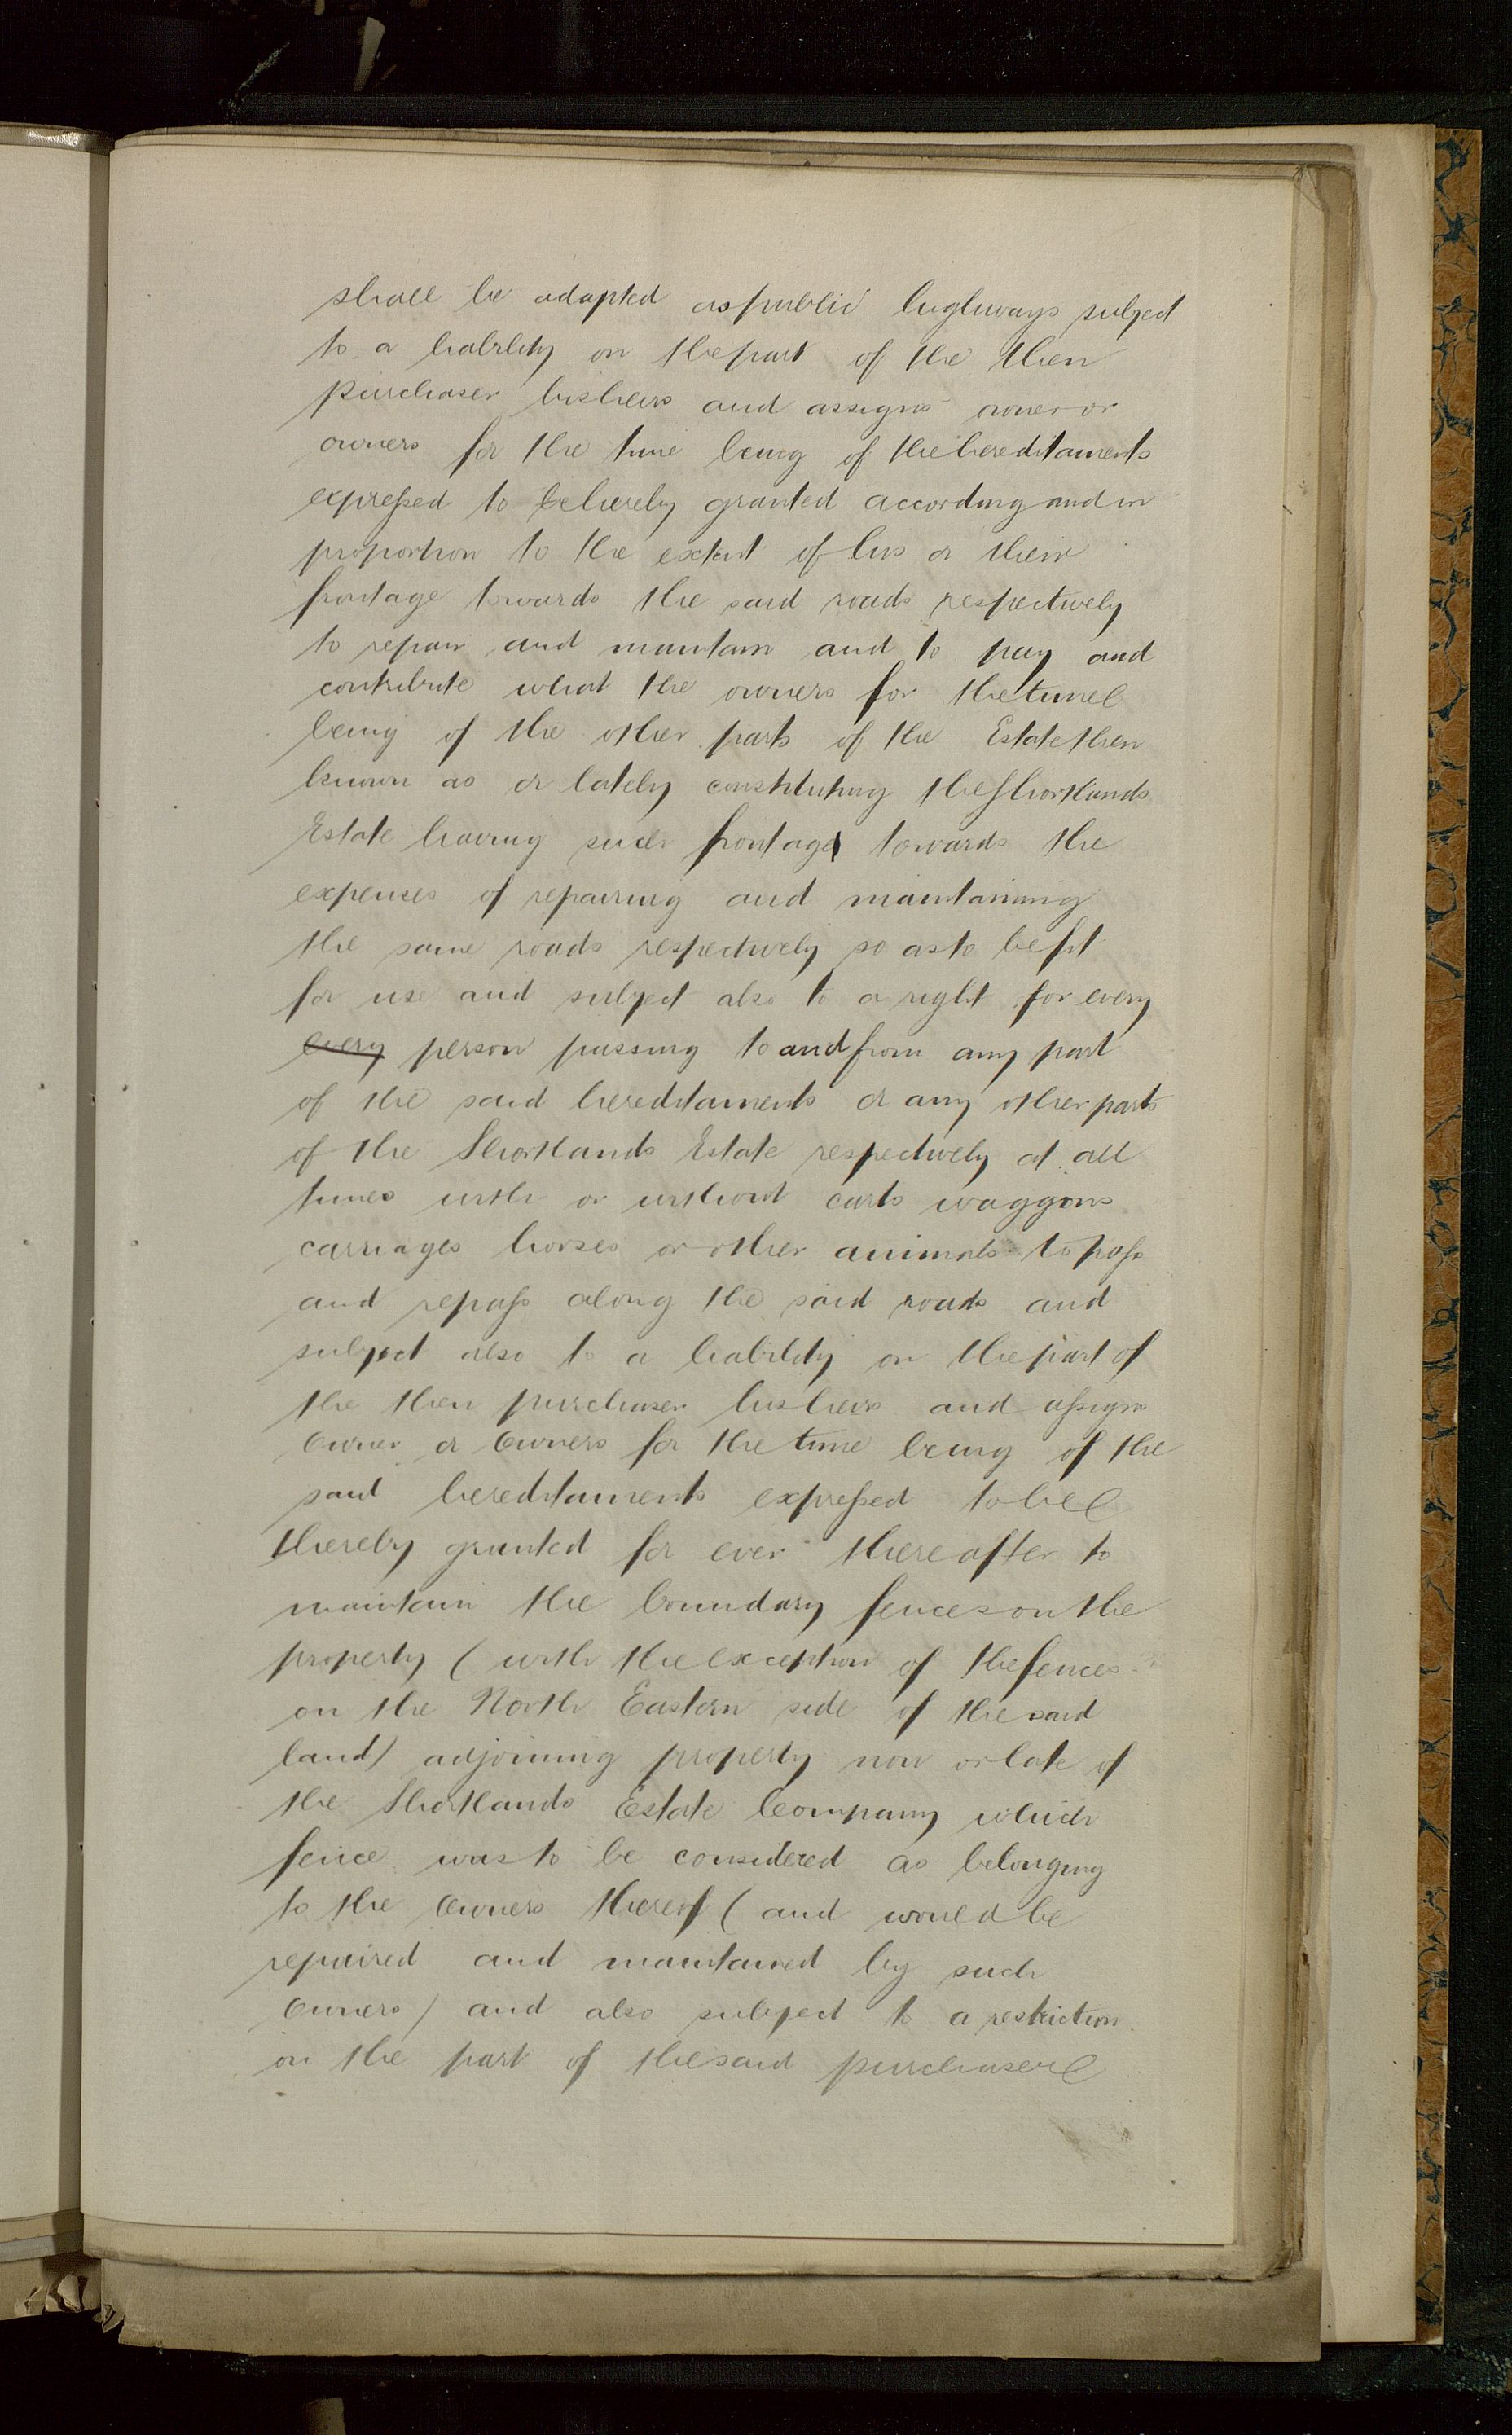 shall be adapted as public highways subject
to a liability on the part of the then
purchaser his heirs and assigns owner or
owners for the time being of the hereditaments
expressed to be hereby granted according and in
proportion to the extent of his or their
frontage towards the said roads respectively
to repair and maintain and to pay and
contribute what the owners for the time
being of the other parts of the Estate then
known as or lately constituting the Shortlands
Estate having such frontage towards the
expenses of repairing and maintaining
the same roads respectively so as to be fit
for use and subject also to a right for every
every person passing to and from any part
of the said hereditaments or any other parts
of the Shortlands Estate respectively at all
times with or without carts waggons
carriages horses or other animals to pass
and repass along the said roads and
subject also to a liability on the part of
the then purchaser his heirs and assigns
Owner or Owners for the time being of the
said hereditaments expressed to be
thereby granted for ever thereafter to
maintain the boundary fences on the
property (with the exception of the fences
on the North Eastern side of the said
land) adjoining property now or late of
the Shortlands Estate Company which
fence was to be considered as belonging
to the Owners thereof (and would be
repaired and maintained by such
Owners) and also subject to a restriction
on the part of the said purchaser